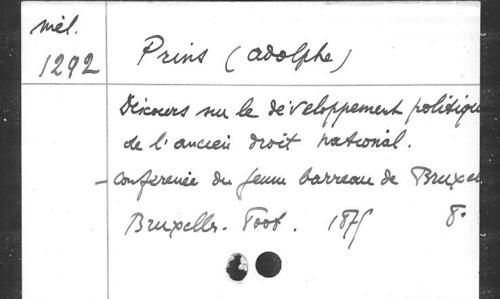 mél.
1292
Prins (adolphe)
Discours sur le développement politique
de l'ancien droit national.
- conférence du Jeune barreau de Bruxel
Bruxelles. Toot. 1875 8°